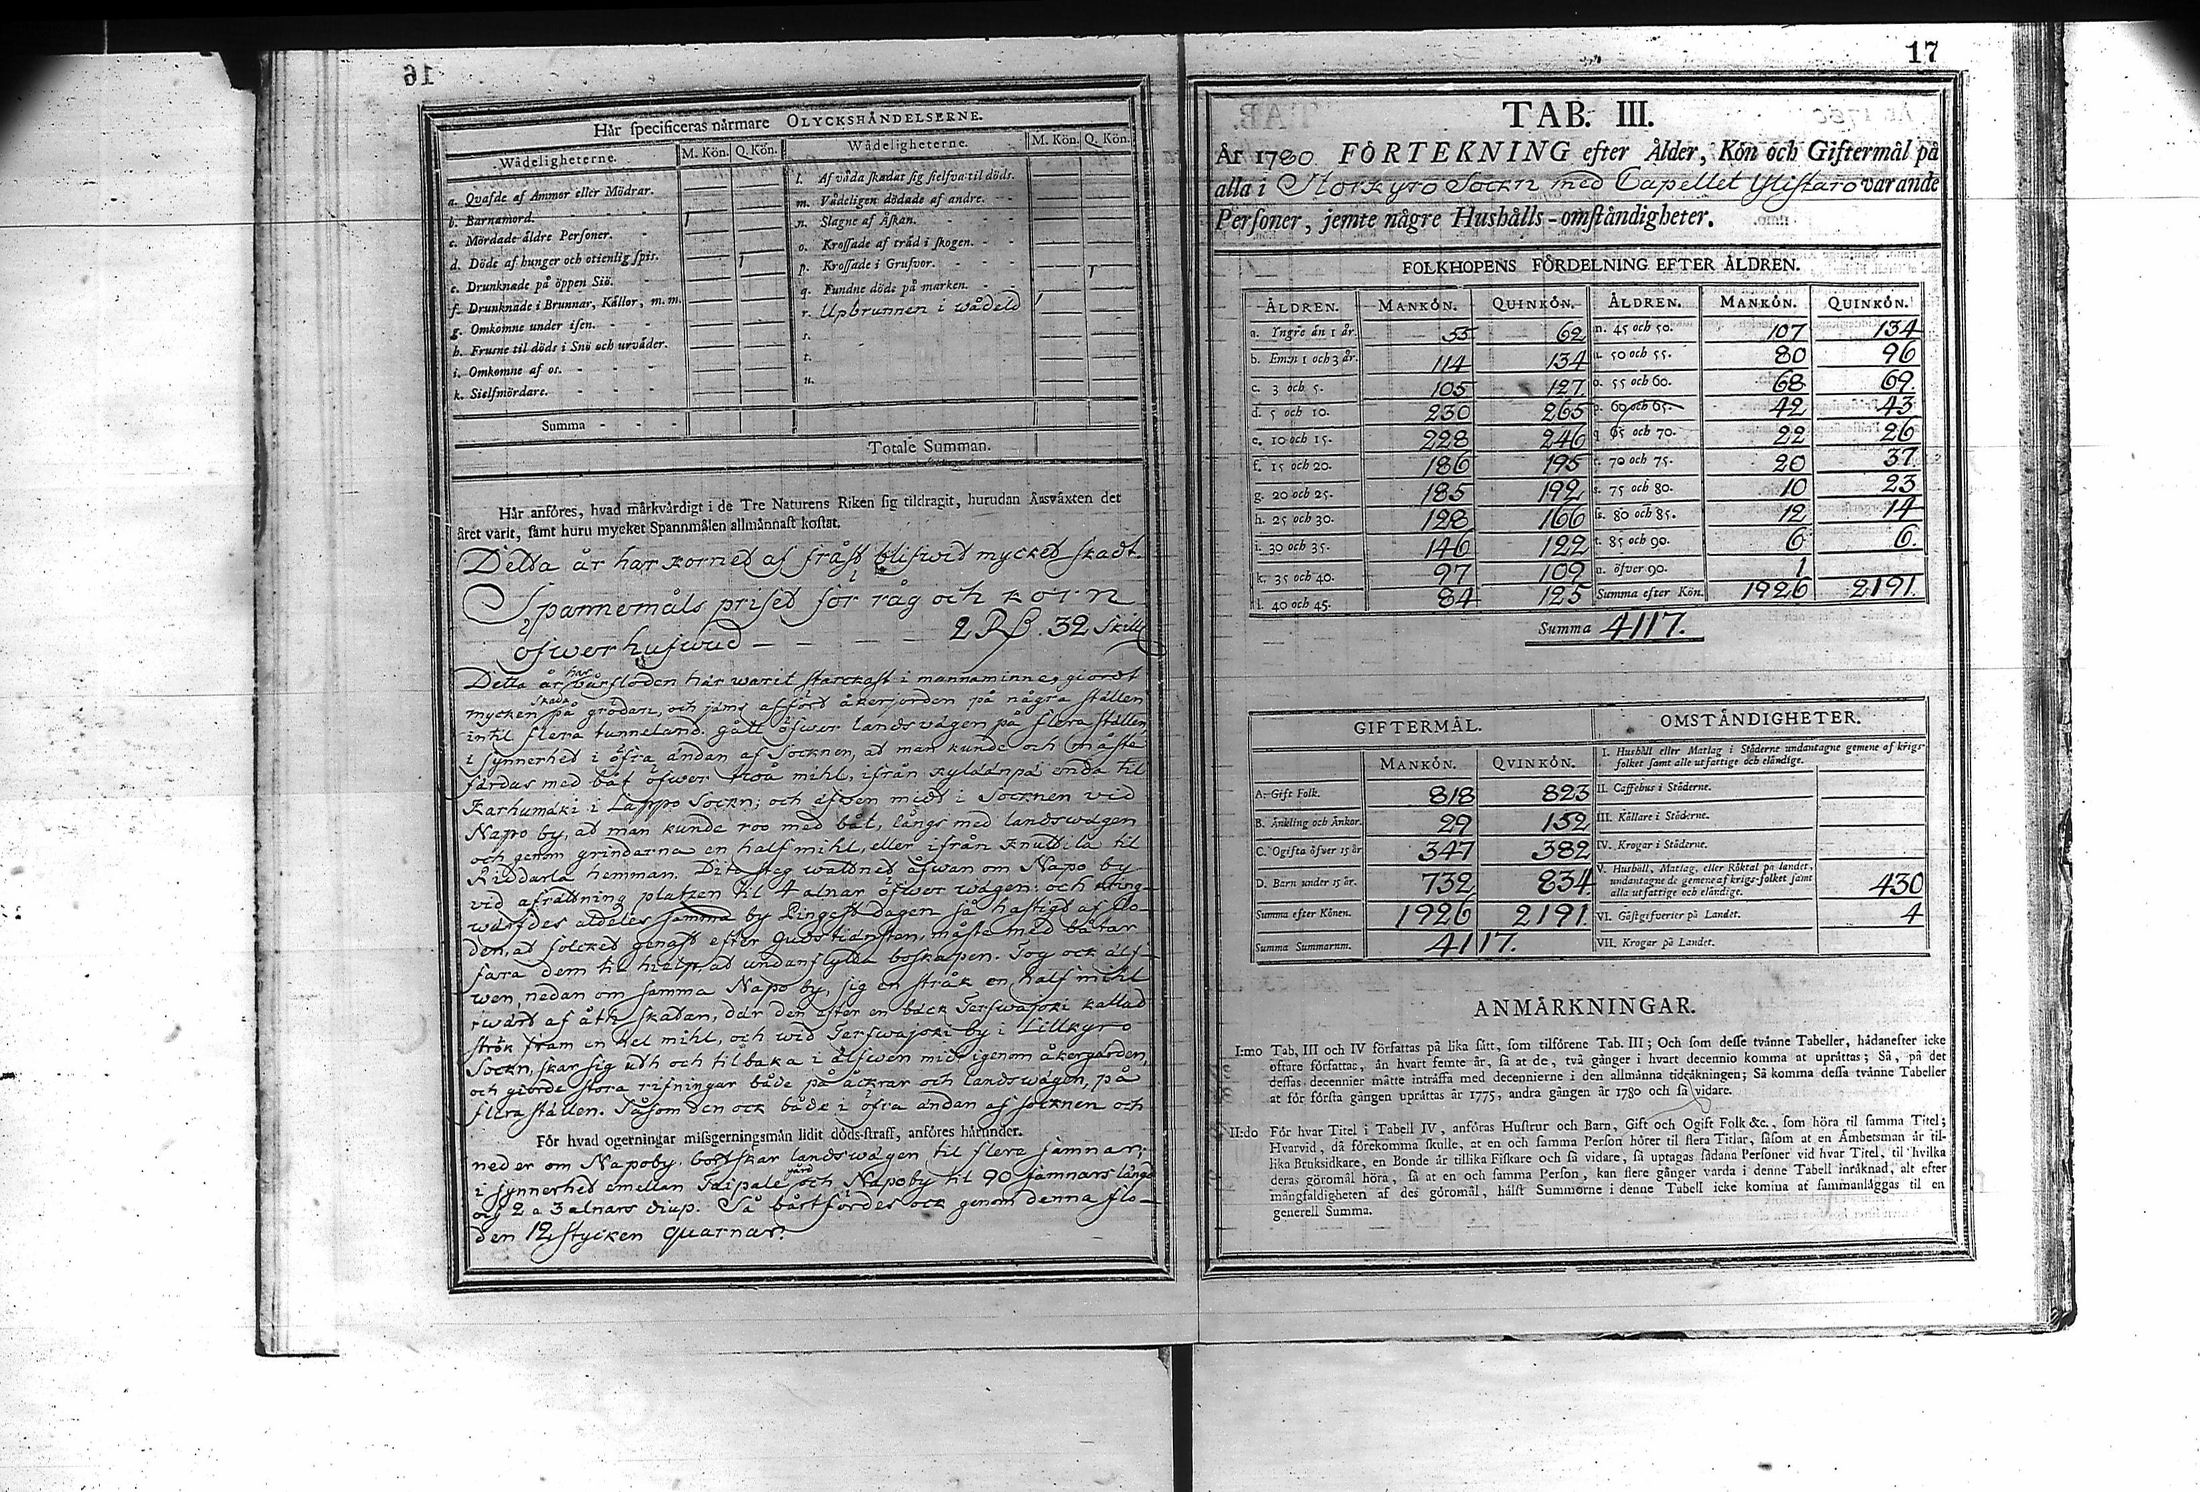 16
Här specificeras närmare OLYCKSHÄNDELSERNE.
Wådeligheterne. M. Kön. Q. Kön. Wådeligheterne. M. Kön. Q. Kön.
a. Qvafde af Ammor eller Mödrar.
b. Barnamord. 1
c. Mördade äldre Personer.
d. Döde af hunger och otienlig spis. 1
e. Drunknade på öppen Siö.
f. Drunknade i Brunnar, Källor, m. m.
g. Omkomne under isen.
h. Frusne til döds i Snö och urväder.
i. Omkomne af os.
k. Sielfmördare.
l. Af våda skadat sig sielfva til döds.
m. Vådeligen dödade af andre.
n. Slagne af Åskan.
o. Krossade af träd i skogen.
p. Krossade i Grufvor.
q. Fundne döde på marken. 1
r. Upbrunnen i wådeld 1
s.
t.
u.
Summa
Totale Summan.
Här anföres, hvad märkvärdigt i de Tre Naturens Riken sig tildragit, hurudan Årsväxten det
året varit, samt huru mycket Spannmålen allmännast kostat.
Detta år har kornet af fråst blifwid mycket skadt.
Spannemåls priset för råg och korn
öfwer hufwud — — — — 2 R 32 skill
Detta år har wårfloden här warit starckast i mannaminne, giordt
mycken skada på grödan, och jäms afförd åkerjorden på några ställen
intil flera tunneland. gått öfwer landswägen på flera ställen,
i synnerhet i öfra ändan af Socknen, ad man kunde och måste
färdas med båt öfwer mihl, ifrån Kyläänpä enda til
Karhumäki i Lappo Sockn; och äfwen midt i Socknen vid
Napo by, ad man kunde roo med båt, långs med landswägen
och genom grindarna en half mihl, eller ifrån Knuttila til
Riddarla hemman. Dito steg watned äfwan om Napo by
vid afrättning platzen til 4 alnar öfwer wägen: och kring-
wärfdes aldeles samma by Pingest dagen så hastigt af flo-
den, ad folcked genast efter Gudstiänsten, måste med båtar
fara dem til hielp, ad undanflytta boskapen. Tog ock älf-
wen, nedan om samma Napo by, sig en stråk en half mihl
wärd af åth skatan, där den efter en bäck Terfwajoki kallad
strök fram en hel mihl, och wid Terfwajoki by i Lillkyro
Sockn, skar sig udh och tilbaka i älfwen midt igenom åkergården,
och giorde stora rifningar både på åckrar och landswägen, på
flera ställen. Såsom den ock både i öfra ändan af socknen och
För hvad ogerningar missgerningsmän lidit döds-straff, anföres härunder.
neder om Napoby bortskar landswägen til flera famnar;
i synnerhet emellan Taipale gård och Napoby til 90 famnars längd
och 2 a 3 alnars diup. Så bårtfördes ock genom denna flo-
den 12 stycken quarnar.
17
TAB. III.
År 1780 FÖRTEKNING efter Ålder, Kön och Giftermål på
alla i Storkyro Sockn med Capellet Ylistaro varande
Personer, jemte någre Hushålls-omständigheter.
FOLKHOPENS FÖRDELNING EFTER ÅLDREN.
ÅLDREN. MANKÖN. QUINKÖN. ÅLDREN. MANKÖN. QUINKÖN.
a. Yngre än 1 år. 55 62 n. 45 och 50. 107 134
b. Em:n 1 och 3 år. 114 134 50 och 55. 80 96
c. 3 och 5. 105 127 o. 55 och 60. 68 69
d. 5 och 10. 230 265 p. 60 och 65. 42 43
e. 10 och 15. 228 246 q 65 och 70. 22 26
f. 15 och 20. 186 195 r. 70 och 75. 20 37
g. 20 och 25. 185 192 s. 75 och 80. 10 23
h. 25 och 30. 128 166 80 och 85. 12 14
i. 30 och 35. 146 122 t. 85 och 90. 6 6.
k. 35 och 40. 97 109 u. öfver 90. 1
l. 40 och 45. 84 125 Summa efter Kön. 1926 2191.
Summa 4117.
GIFTERMÅL. OMSTÄNDIGHETER.
MANKÖN. QVINKÖN.
A. Gift Folk. 818 823
B. Änkling och Änkor. 29 152
C. Ogifta öfver 15 år 347 382
D. Barn under 15 år. 732 834
Summa efter Könen. 1926 2191.
Summa Summarum. 4117.
I. Hushåll eller Matlag i Städerne undantagne gemene af krigs-
folket samt alle utfattige och eländige.
II. Caffehus i Städerne.
III. Källare i Städerne.
IV. Krogar i Städerne.
V. Hushåll, Matlag, eller Röktal på landet,
undantagne de gemene af krigs-folket samt
alla utfattige och eländige. 430
VI. Gästgifverier på Landet. 4
VII. Krogar på Landet.
ANMÄRKNINGAR.
I:mo Tab, III och IV författas på lika sätt, som tilförene Tab. III; Och som desse tvänne Tabeller, hädanefter icke
oftare författas, än hvart femte år, så at de, två gånger i hvart decennio komma at uprättas; Så, på det
dessas decennier måtte inträffa med decennierne i den allmänna tidräkningen; Så komma dessa tvänne Tabeller
at för första gången uprättas år 1775, andra gången år 1780 och så vidare.
II:do För hvar Titel i Tabell IV, anföras Hustrur och Barn, Gift och Ogift Folk &c., som höra til samma Titel;
Hvarvid, då förekomma skulle, at en och samma Person hörer til flera Titlar, såsom at en Ämbetsman är til-
lika Bruksidkare, en Bonde är tillika Fiskare och så vidare, så uptagas sådana Personer vid hvar Titel, til hvilka
deras göromål höra, så at en och samma Person, kan flere gånger varda i denne Tabell inräknad, alt efter
mångfaldigheten af des göromål, hälst Summorne i denne Tabell icke komma at sammanläggas til en
generell Summa.